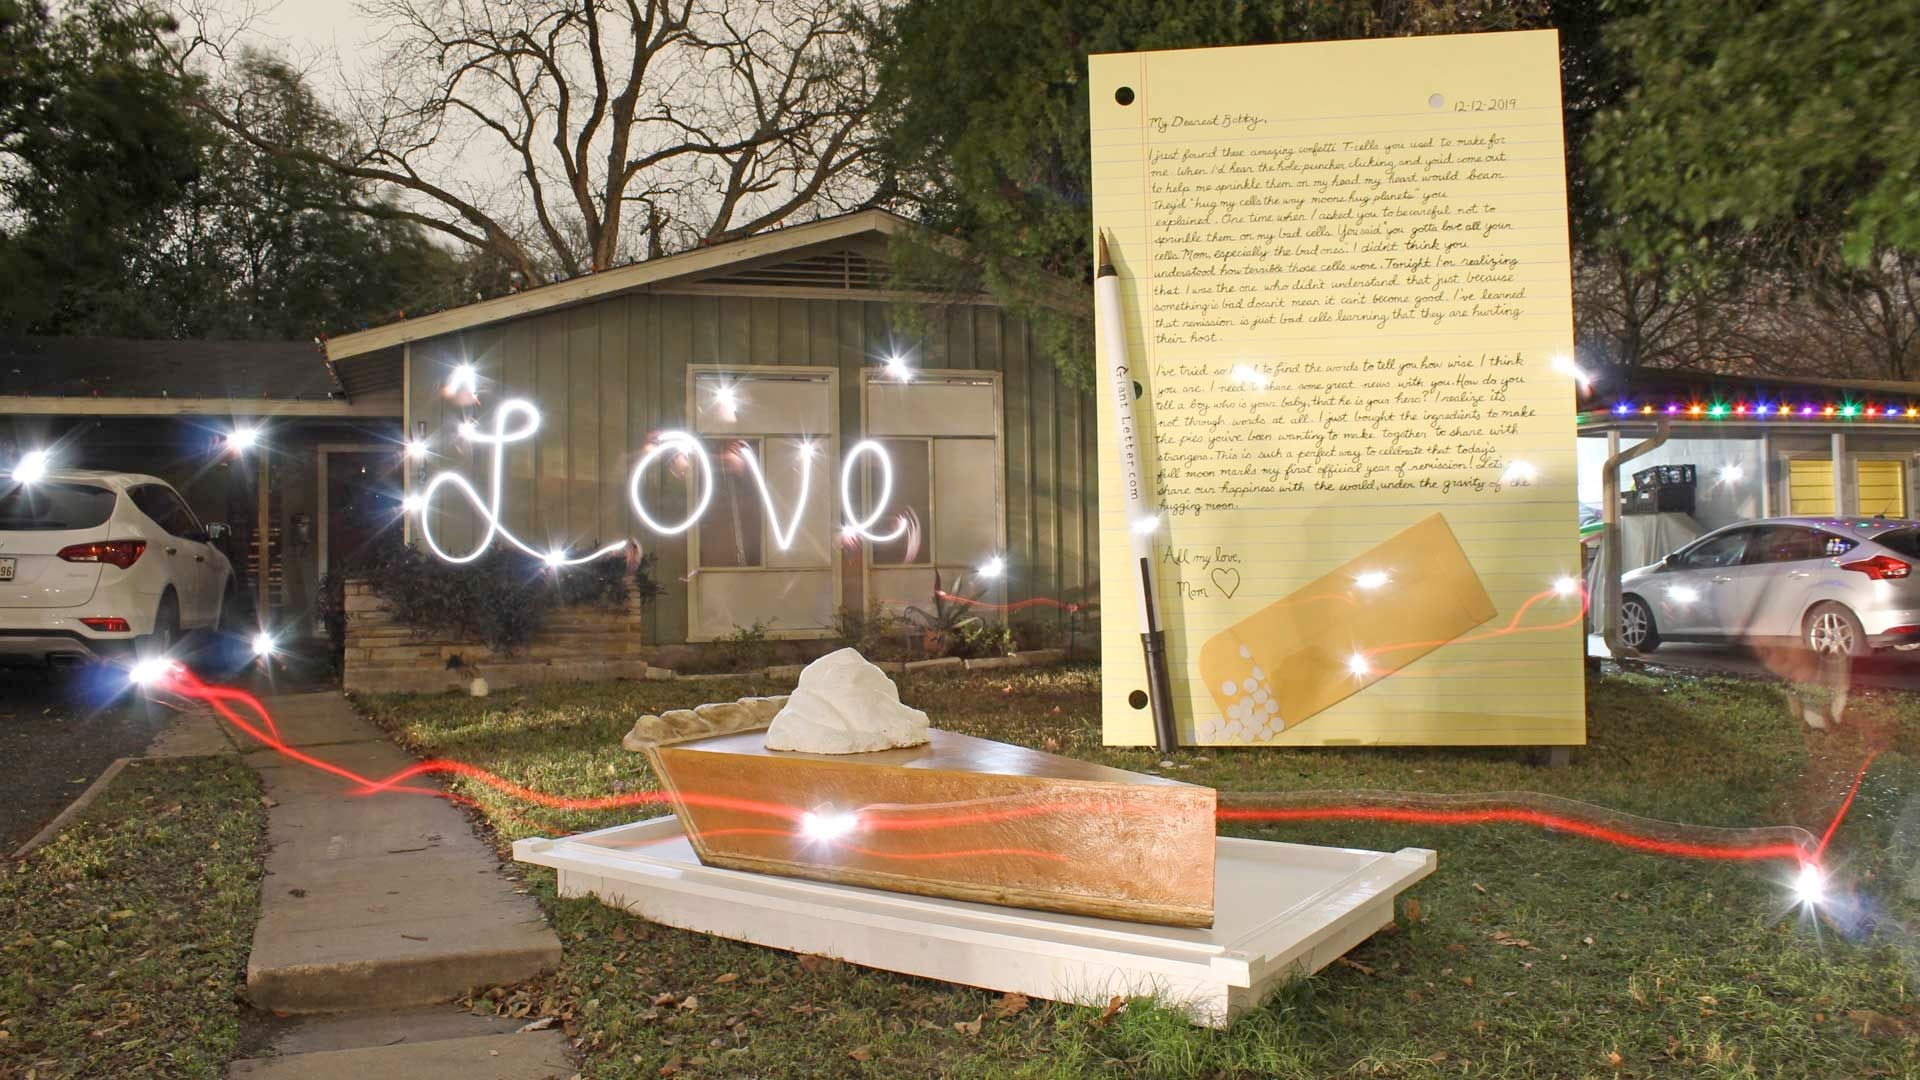 Love
12-12-2019
My Dearest Bobby,
I just found these amazing confetti T-cells you used to make for
me. When I'd hear the hole puncher clicking and you'd come out
to help me sprinkle them on my head my heart would beam.
They'd "hug my cells the way moons hug planets" you
explained. One time when I asked you to be careful not to
sprinkle them on my bad cells. You said "you gotta love all your
cells Mom, especially the bad ones." I didn't think you
understood how terrible those cells were. Tonight I'm realizing
that I was the one who didn't understand that just because
something is bad doesn't mean it can't become good. I've learned
that remission is just bad cells learning that they are hurting
their host.
I've tried so to find the words to tell you how wise I think
you are. I need to share some great news with you. How do you
tell a boy who is your baby, that he is your hero? I realize it's
not through words at all. I just bought the ingredients to make
the pies you've been wanting to make together to share with
strangers. This is such a perfect way to celebrate that today's
full moon marks my first official year of remission! Let's
share our happiness with the world, under the gravity of the
hugging moon.
All my love,
Mom ♡
Giant Letter.com
96